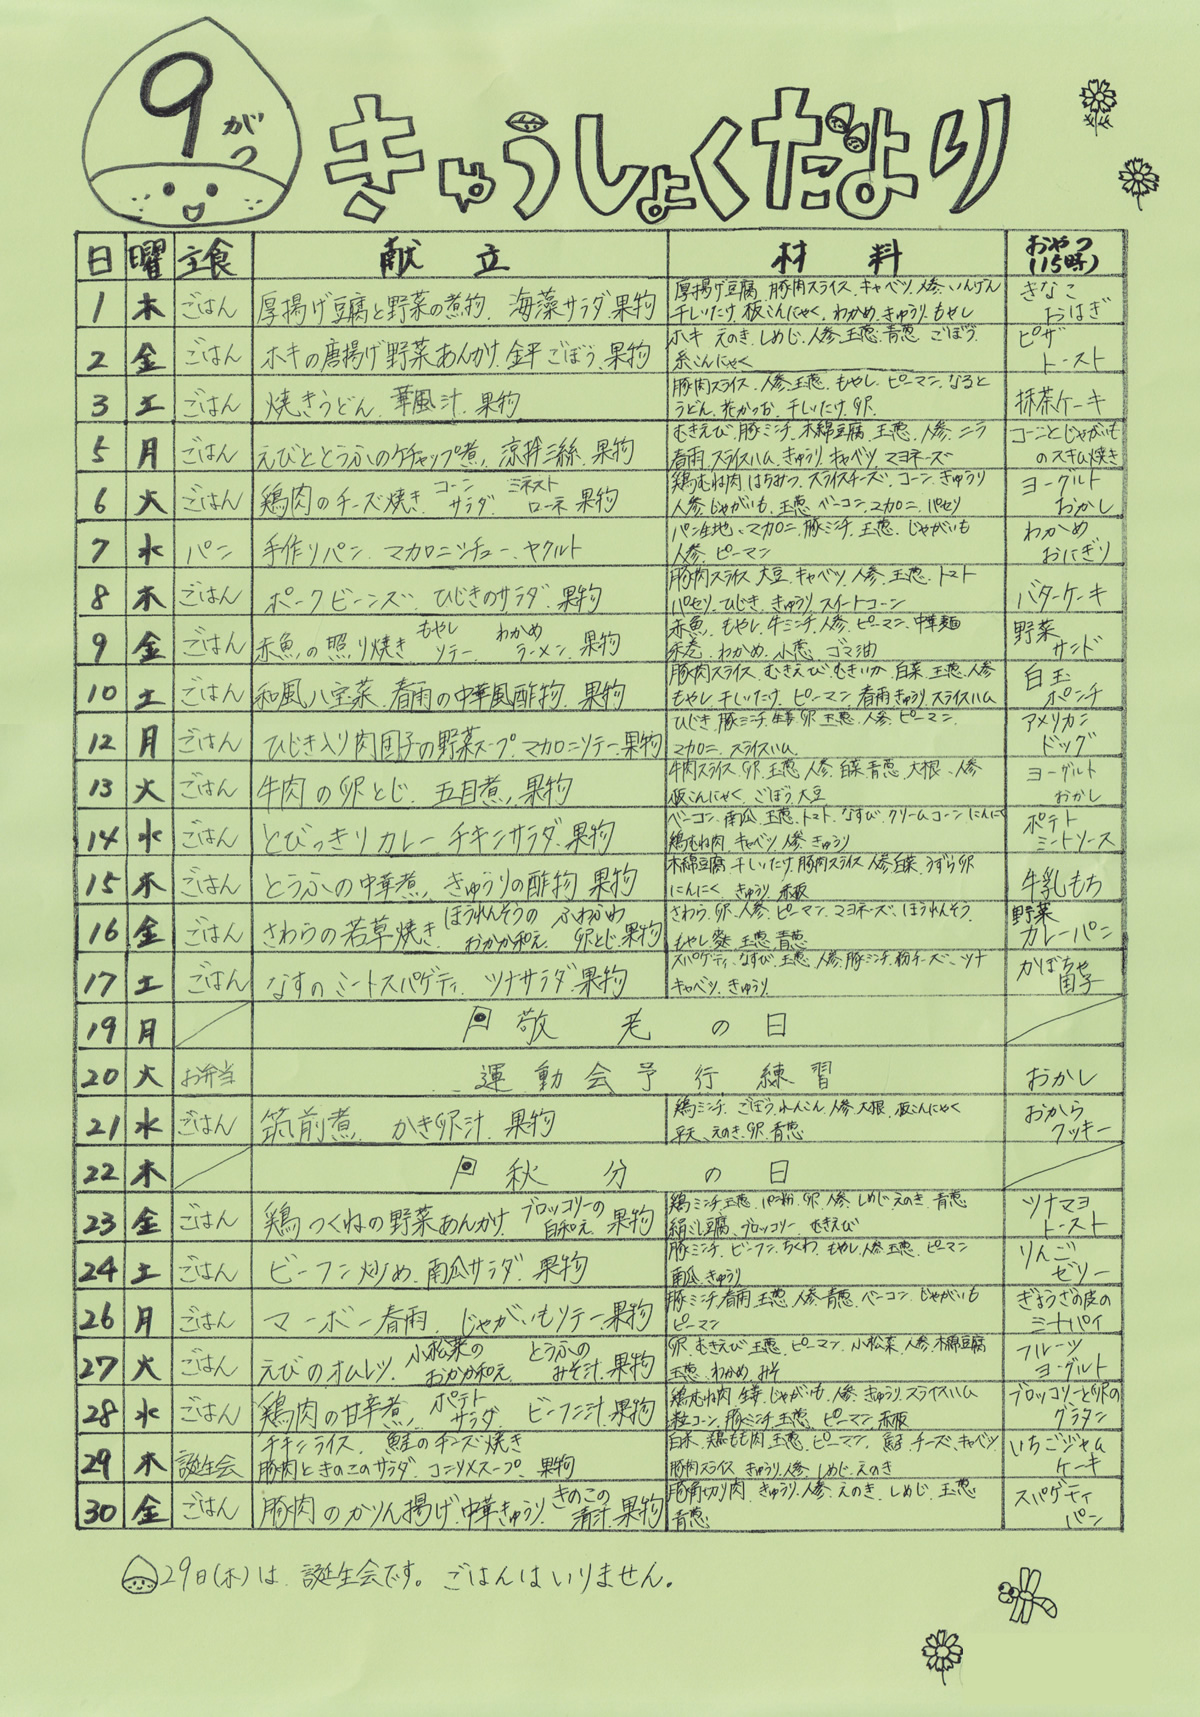 9がつ
きゅうしょくだより
日 曜 主食 献立 材料 おやつ(15時)
1 木 ごはん 厚揚げ豆腐と野菜の煮物、海藻サラダ、果物 厚揚げ豆腐、豚肉スライス、キャベツ、人参、いんげん きなこ
干しいたけ、板こんにゃく、わかめ、きゅうり、もやし おはぎ
2 金 ごはん ホキの唐揚げ野菜あんかけ、金平ごぼう、果物 ホキ、えのき、しめじ、人参、玉葱、青葱、ごぼう、 ピザ
糸こんにゃく トースト
3 土 ごはん 焼きうどん、華風汁、果物 豚肉スライス、人参、玉葱、もやし、ピーマン、なると 抹茶ケーキ
うどん、花かつお、干しいたけ、卵、
5 月 ごはん えびととうふのケチャップ煮、涼拌三絲、果物 むきえび、豚ミンチ、木綿豆腐、玉葱、人参、ニラ コーンとじゃがいも
春雨、スライスハム、きゅうり、キャベツ、マヨネーズ のスキム焼き
6 火 ごはん 鶏肉のチーズ焼き、コーンサラダ、ミネストローネ、果物 鶏むね肉、はちみつ、スライスチーズ、コーン、きゅうり ヨーグルト
人参、じゃがいも、玉葱、ベーコン、マカロニ、パセリ おかし
7 水 パン 手作りパン、マカロニシチュー、ヤクルト パン生地、マカロニ、豚ミンチ、玉葱、じゃがいも わかめ
人参、ピーマン おにぎり
8 木 ごはん ポークビーンズ、ひじきのサラダ、果物 豚肉スライス、大豆、キャベツ、人参、玉葱、トマト バターケーキ
パセリ、ひじき、きゅうり、スイートコーン
9 金 ごはん 赤魚の照り焼き、もやしソテー、わかめラーメン、果物 赤魚、もやし、牛ミンチ、人参、ピーマン、中華麺 野菜
わかめ、小葱、ゴマ油 サンド
10 土 ごはん 和風八宝菜、春雨の中華風酢物、果物 豚肉スライス、むきえび、むきいか、白菜、玉葱、人参 白玉
もやし、干しいたけ、ピーマン、春雨、きゅうり、スライスハム ポンチ
12 月 ごはん ひじき入り肉団子の野菜スープ、マカロニソテー、果物 ひじき、豚ミンチ、生姜、卵、玉葱、人参、ピーマン、 アメリカン
マカロニ、スライスハム、 ドッグ
13 火 ごはん 牛肉の卵とじ、五目煮、果物 牛肉スライス、卵、玉葱、人参、白菜、青葱、大根、人参 ヨーグルト
板こんにゃく、ごぼう、大豆 おかし
14 水 ごはん とびっきりカレー、チキンサラダ、果物 ベーコン、南瓜、玉葱、トマト、なすび、クリームコーン、にんにく ポテト
鶏むね肉、キャベツ、人参、きゅうり ミートソース
15 木 ごはん とうふの中華煮、きゅうりの酢物、果物 木綿豆腐、干しいたけ、豚肉スライス、人参、白菜、うずら卵 牛乳もち
にんにく、きゅうり、赤板
16 金 ごはん さわらの若草焼き、ほうれんそうのおかか和え、ふわふわ卵とじ、果物 さわら、卵、人参、ピーマン、マヨネーズ、ほうれんそう、 野菜
もやし、麩、玉葱、青葱 カレーパン
17 土 ごはん なすのミートスパゲティ、ツナサラダ、果物 スパゲティ、なすび、玉葱、人参、豚ミンチ、粉チーズ、ツナ かぼちゃ
キャベツ、きゅうり 団子
19 月 敬老の日
20 火 お弁当 運動会予行練習 おかし
21 水 ごはん 筑前煮、かき卵汁、果物 鶏ミンチ、ごぼう、れんこん、人参、大根、板こんにゃく おから
平天、えのき、卵、青葱 クッキー
22 木 秋分の日
23 金 ごはん 鶏つくねの野菜あんかけ、ブロッコリーの白和え、果物 鶏ミンチ、玉葱、パン粉、卵、人参、しめじ、えのき、青葱 ツナマヨ
絹ごし豆腐、ブロッコリー、むきえび トースト
24 土 ごはん ビーフン炒め、南瓜サラダ、果物 豚ミンチ、ビーフン、ちくわ、もやし、人参、玉葱、ピーマン りんご
南瓜、きゅうり ゼリー
26 月 ごはん マーボー春雨、じゃがいもソテー、果物 豚ミンチ、春雨、玉葱、人参、青葱、ベーコン、じゃがいも ぎょうざの皮の
ピーマン ミートパイ
27 火 ごはん えびのオムレツ、小松菜のおかか和え、とうふのみそ汁、果物 卵、むきえび、玉葱、ピーマン、小松菜、人参、木綿豆腐 フルーツ
玉葱、わかめ、みそ ヨーグルト
28 水 ごはん 鶏肉の甘辛煮、ポテトサラダ、ビーフン汁、果物 鶏むね肉、生姜、じゃがいも、人参、きゅうり、スライスハム ブロッコリーと卵の
粒コーン、豚ミンチ、玉葱、ピーマン、赤板 グラタン
29 木 誕生会 チキンライス、鮭のチーズ焼き 白米、鶏もも肉、玉葱、ピーマン、鮭、チーズ、キャベツ いちごジャム
豚肉ときのこのサラダ、コンソメスープ、果物 豚肉スライス、きゅうり、人参、しめじ、えのき ケーキ
30 金 ごはん 豚肉のかりん揚げ、中華きゅうり、きのこの清汁、果物 豚角切り肉、きゅうり、人参、えのき、しめじ、玉葱 スパゲティ
青葱 パン
29日(木)は、誕生会です。ごはんはいりません。